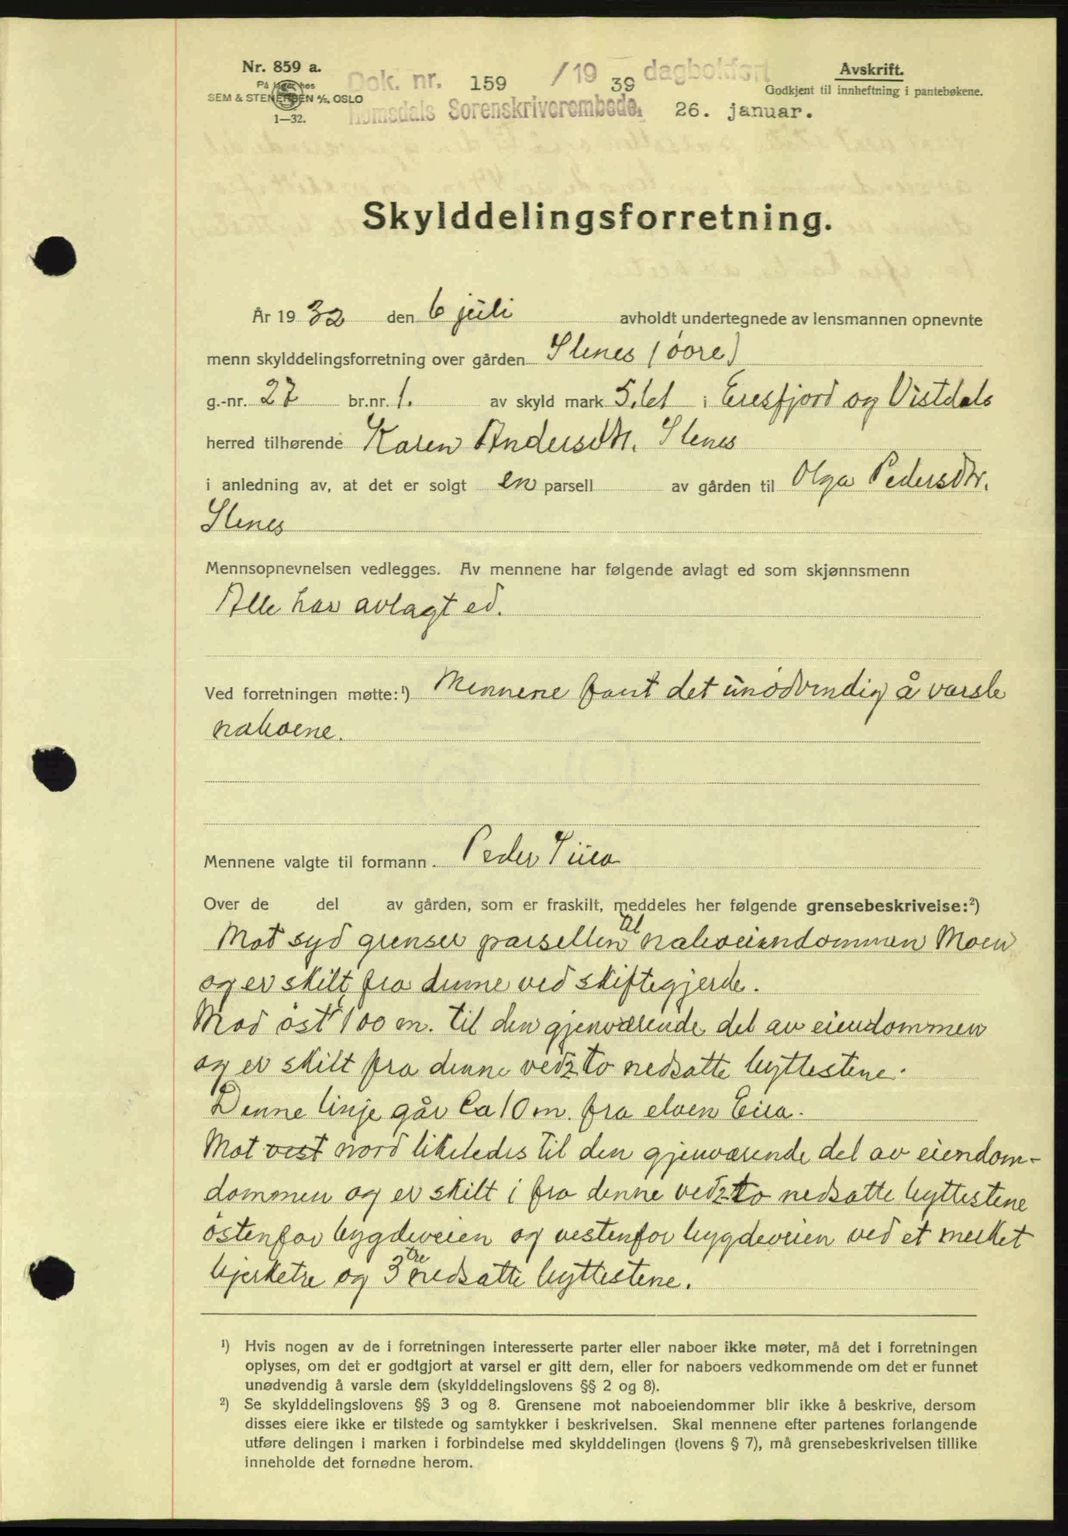 Nr. 859 a.
På lager hos
SEM & STENERSEN A/S, OSLO
1—32.
Dok. nr. 159 /19 39 dagbokført
Romsdals Sorenskriverembede, 26. januar.
Avskrift.
Godkjent til innheftning i pantebøkene.
Skylddelingsforretning.
År 1932 den 6 juli avholdt undertegnede av lensmannen opnevnte
menn skylddelingsforretning over gården Slenes (øore)
g.-nr. 27 br.nr. 1. av skyld mark 5,61 i Eresfjord og Vistdals
herred tilhørende Karen Andersdtr. Slenes
i anledning av, at det er solgt en parsell av gården til Olga Pedersdtr.
Slenes
Mennsopnevnelsen vedlegges. Av mennene har følgende avlagt ed som skjønnsmenn
Alle har avlagt ed.
Ved forretningen møtte:¹) Mennene fant det unødvendig å varsle
naboene.
Mennene valgte til formann. Peder Siira
Over de del av gården, som er fraskilt, meddeles her følgende grensebeskrivelse:²)
Mot syd grenser parsellen til naboeiendommen Moen
og er skilt fra denne ved skiftegjerde.
Mod øst 100 m. til den gjenværende del av eiendommen
og er skilt fra denne ved 2 to nedsatte byttestene.
Denne linje går Ca 10 m. fra elven Eira.
Mot vest nord likeledes til den gjenværende del av eiendom-
dommen og er skilt i fra denne ved 2 to nedsatte byttestene
østenfor bygdeveien og vestenfor bygdeveien ved et merket
bjerketre og 3 tre nedsatte byttestene.
¹) Hvis nogen av de i forretningen interesserte parter eller naboer ikke møter, må det i forretningen
oplyses, om det er godtgjort at varsel er gitt dem, eller for naboers vedkommende om det er funnet
unødvendig å varsle dem (skylddelingslovens §§ 2 og 8).
²) Se skylddelingslovens §§ 3 og 8. Grensene mot naboeiendommer blir ikke å beskrive, dersom
disses eiere ikke er tilstede og samtykker i beskrivelsen. Skal mennene efter partenes forlangende
utføre delingen i marken i forbindelse med skylddelingen (lovens § 7), må grensebeskrivelsen tillike
inneholde det fornødne herom.